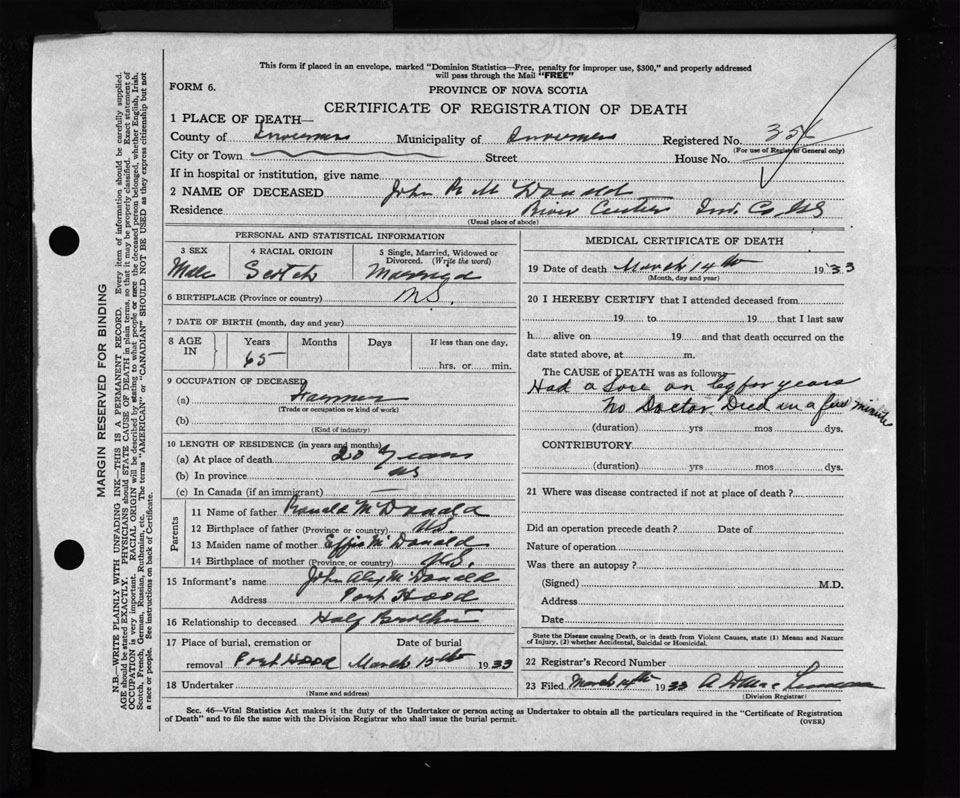 This form if placed in an envelope, marked "Dominion Statistics—Free, penalty for improper use, $300," and properly addressed
will pass through the Mail "FREE"
FORM 6.
PROVINCE OF NOVA SCOTIA
CERTIFICATE OF REGISTRATION OF DEATH
1 PLACE OF DEATH—
County of Inverness Municipality of Inverness Registered No. 35
(For use of Registrar General only)
City or Town Street House No.
If in hospital or institution, give name
2 NAME OF DECEASED John R McDonald
Residence River Center Inv. Co NS
(Usual place of abode)
PERSONAL AND STATISTICAL INFORMATION
3 SEX 4 RACIAL ORIGIN 5 Single, Married, Widowed or
Divorced. (Write the word)
Male Scotch Married
6 BIRTHPLACE (Province or country) N.S.
7 DATE OF BIRTH (month, day and year)
8 AGE IN Years Months Days If less than one day,
65 hrs. or min.
9 OCCUPATION OF DECEASED
(a) Farmer
(Trade or occupation or kind of work)
(b)
(Kind of industry)
10 LENGTH OF RESIDENCE (in years and months)
(a) At place of death 20 years
(b) In province NS
(c) In Canada (if an immigrant) —
Parents
11 Name of father Ronald McDonald
12 Birthplace of father (Province or country) N.S.
13 Maiden name of mother Effie McDonald
14 Birthplace of mother (Province or country) N.S.
15 Informant's name John Alex McDonald
Address Port Hood
16 Relationship to deceased Half Brother
17 Place of burial, cremation or Date of burial
removal Port Hood March 15th 1933
18 Undertaker
(Name and address)
MEDICAL CERTIFICATE OF DEATH
19 Date of death March 14th 1933
(Month, day and year)
20 I HEREBY CERTIFY that I attended deceased from
19 to 19 that I last saw
h alive on 19 and that death occurred on the
date stated above, at m.
The CAUSE of DEATH was as follows:
Had a Sore on leg for years
No Doctor Died in a few minutes
(duration) yrs mos dys.
CONTRIBUTORY
(duration) yrs mos dys.
21 Where was disease contracted if not at place of death?
Did an operation precede death? Date of
Nature of operation
Was there an autopsy?
(Signed) M.D.
Address
Date
State the Disease causing Death, or in death from Violent Causes, state (1) Means and Nature
of Injury, (2) whether Accidental, Suicidal or Homicidal.
22 Registrar's Record Number
23 Filed March 14th 1933
(Division Registrar)
Sec. 46—Vital Statistics Act makes it the duty of the Undertaker or person acting as Undertaker to obtain all the particulars required in the "Certificate of Registration
of Death" and to file the same with the Division Registrar who shall issue the burial permit.
(OVER)
MARGIN RESERVED FOR BINDING
N.B.—WRITE PLAINLY WITH UNFADING INK—THIS IS A PERMANENT RECORD. Every item of information should be carefully supplied.
AGE should be stated EXACTLY. PHYSICIANS should STATE CAUSE OF DEATH in plain terms, so that it may be properly classified. Exact statement of
OCCUPATION is very important. RACIAL ORIGIN will be described by stating to what people or race the deceased person belonged, whether English, Irish,
Scotch, French, German, Russian, Ruthenian, etc. The terms "AMERICAN" or "CANADIAN" SHOULD NOT BE USED as they express citizenship but not
a race or people. See instructions on back of Certificate.